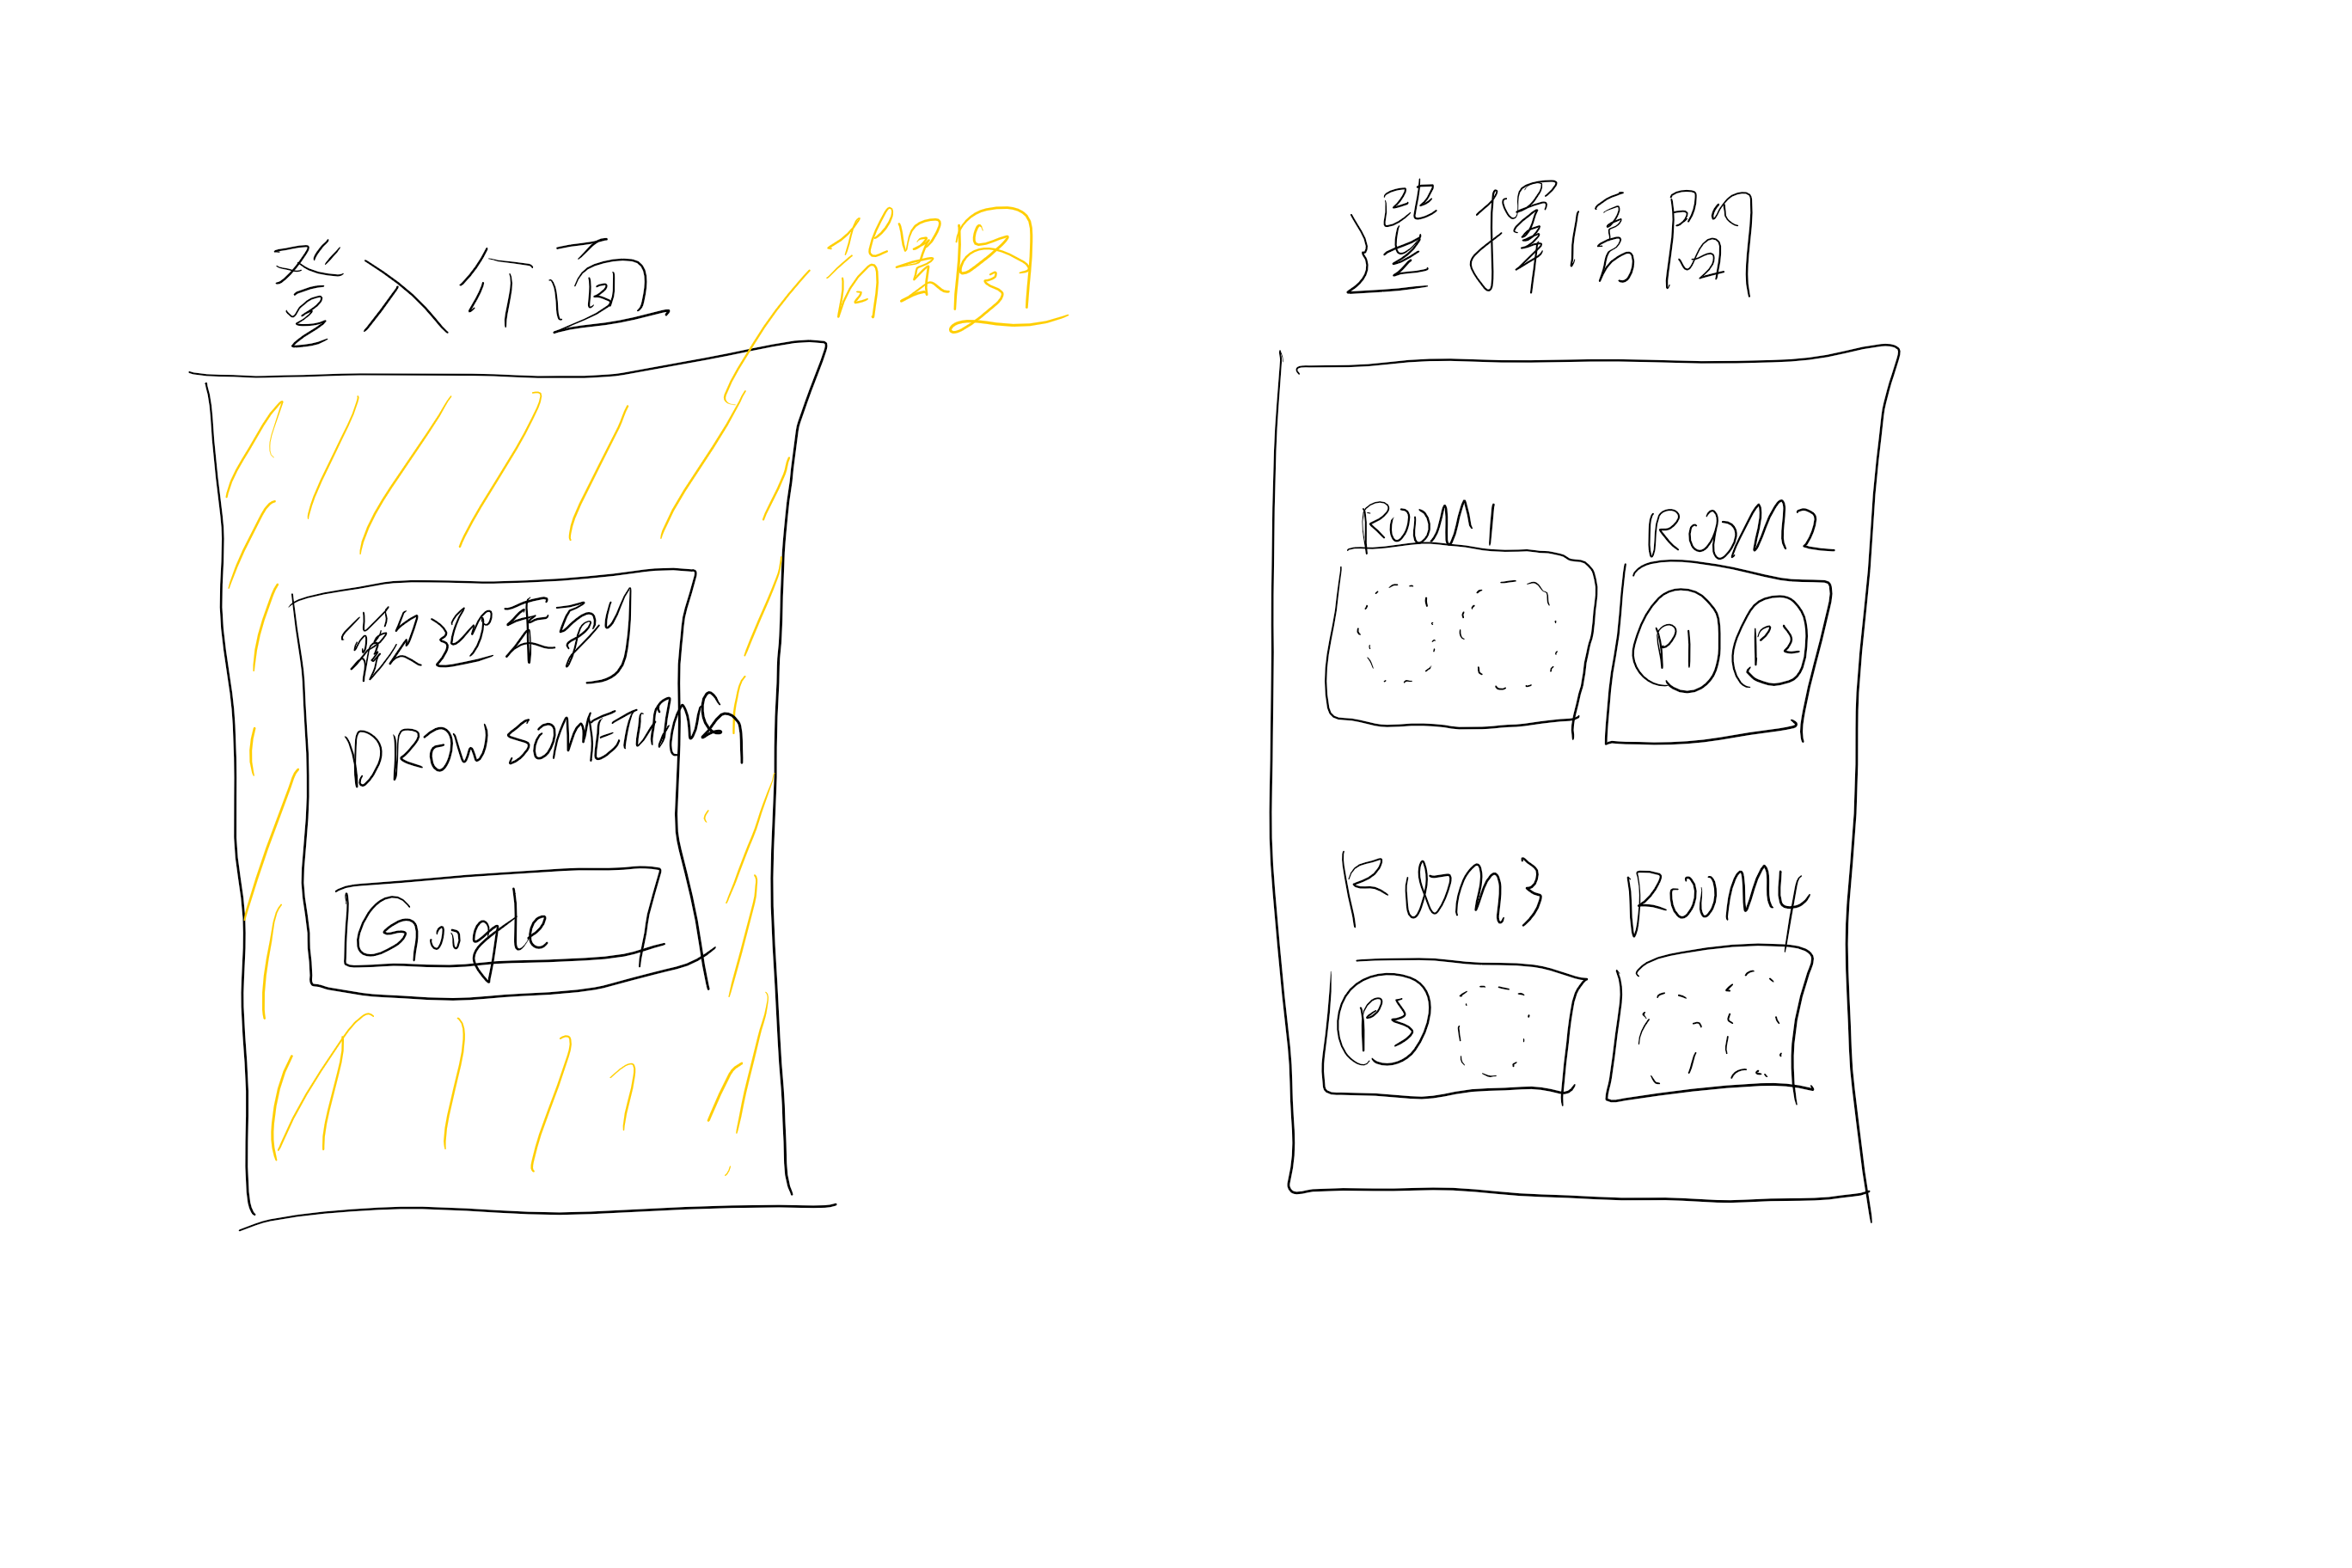 登入介面
背景圖
歡迎來到
DRAW SOMETHING
Google
選擇房間
ROOM1
ROOM2
P1
P2
ROOM3
ROOM4
P3